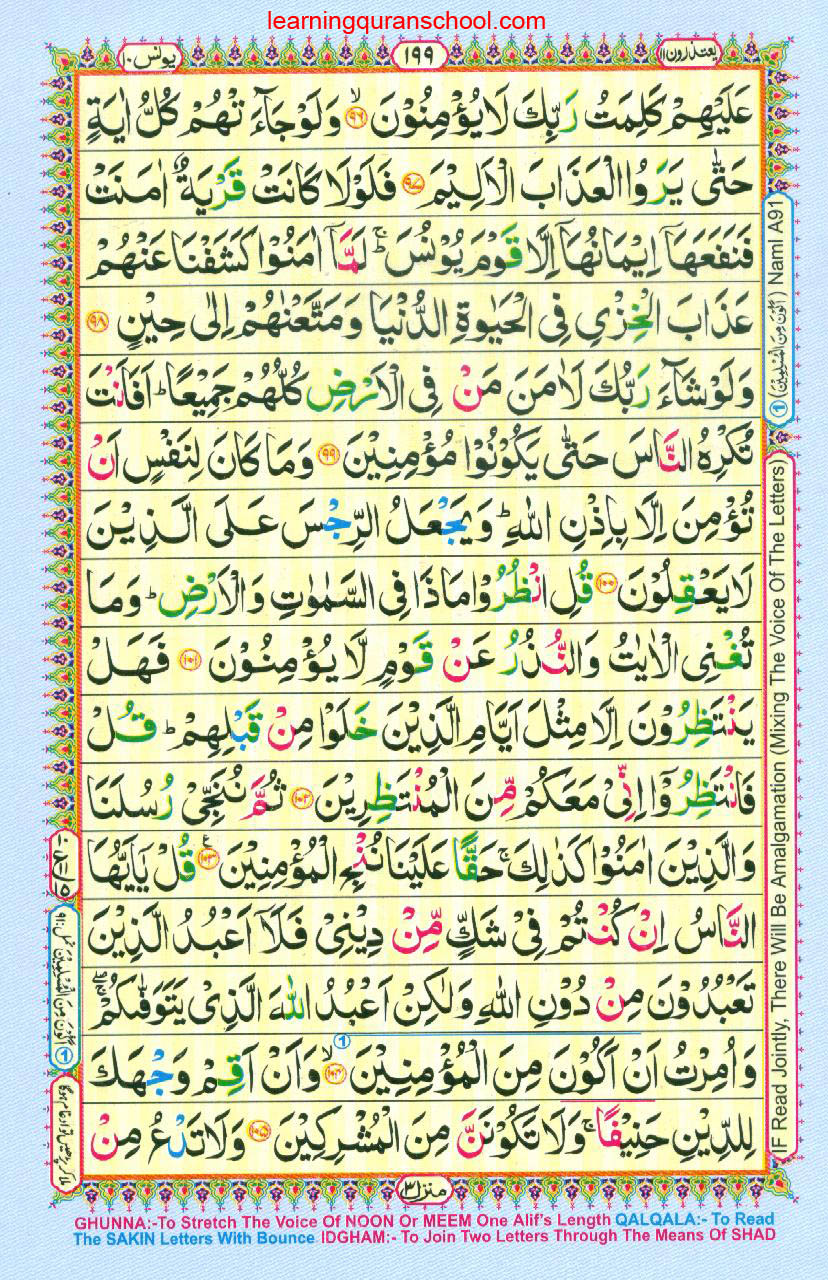 learningquranschool.com
یعتذرون ۱۱
۱۹۹
یونس ۱۰
عَلَيْهِمْ كَلِمَتُ رَبِّكَ لَا يُؤْمِنُوْنَ ۙ‏﴿۹۶﴾ وَلَوْ جَآءَتْهُمْ كُلُّ اٰيَةٍ
حَتّٰى يَرَوُا الْعَذَابَ الْاَلِيْمَ ﴿۹۷﴾ فَلَوْلَا كَانَتْ قَرْيَةٌ اٰمَنَتْ
فَنَفَعَهَاۤ اِيْمَانُهَاۤ اِلَّا قَوْمَ يُوْنُسَ ؕ لَمَّاۤ اٰمَنُوْا كَشَفْنَا عَنْهُمْ
عَذَابَ الْخِزْىِ فِى الْحَيٰوةِ الدُّنْيَا وَمَتَّعْنٰهُمْ اِلٰى حِيْنٍ ﴿۹۸﴾
وَلَوْ شَآءَ رَبُّكَ لَاٰمَنَ مَنْ فِى الْاَرْضِ كُلُّهُمْ جَمِيْعًا ؕ اَفَاَنْتَ
تُكْرِهُ النَّاسَ حَتّٰى يَكُوْنُوْا مُؤْمِنِيْنَ ﴿۹۹﴾ وَمَا كَانَ لِنَفْسٍ اَنْ
تُؤْمِنَ اِلَّا بِاِذْنِ اللّٰهِ ؕ وَيَجْعَلُ الرِّجْسَ عَلَى الَّذِيْنَ
لَا يَعْقِلُوْنَ ﴿۱۰۰﴾ قُلِ انْظُرُوْا مَاذَا فِى السَّمٰوٰتِ وَالْاَرْضِ ؕ وَمَا
تُغْنِى الْاٰيٰتُ وَالنُّذُرُ عَنْ قَوْمٍ لَّا يُؤْمِنُوْنَ ﴿۱۰۱﴾ فَهَلْ
يَنْتَظِرُوْنَ اِلَّا مِثْلَ اَيَّامِ الَّذِيْنَ خَلَوْا مِنْ قَبْلِهِمْ ؕ قُلْ
فَانْتَظِرُوْۤا اِنِّىْ مَعَكُمْ مِّنَ الْمُنْتَظِرِيْنَ ﴿۱۰۲﴾ ثُمَّ نُنَجِّىْ رُسُلَنَا
وَالَّذِيْنَ اٰمَنُوْا كَذٰلِكَ ۚ حَقًّا عَلَيْنَا نُنْجِ الْمُؤْمِنِيْنَ ﴿۱۰۳﴾ قُلْ يٰۤاَيُّهَا
النَّاسُ اِنْ كُنْتُمْ فِىْ شَكٍّ مِّنْ دِيْنِىْ فَلَاۤ اَعْبُدُ الَّذِيْنَ
تَعْبُدُوْنَ مِنْ دُوْنِ اللّٰهِ وَلٰكِنْ اَعْبُدُ اللّٰهَ الَّذِىْ يَتَوَفّٰٮكُمْ ۖۚ
وَاُمِرْتُ اَنْ اَكُوْنَ مِنَ الْمُؤْمِنِيْنَ ۙ‏﴿۱۰۴﴾ وَاَنْ اَقِمْ وَجْهَكَ
لِلدِّيْنِ حَنِيْفًا ۚ وَلَا تَكُوْنَنَّ مِنَ الْمُشْرِكِيْنَ ﴿۱۰۵﴾ وَلَا تَدْعُ مِنْ
منزل ۳
① (اَكُوْنَ مِنَ الْمُسْلِمِيْنَ) Naml A91
IF Read Jointly, There Will Be Amalgamation (Mixing The Voice Of The Letters)
① اَكُوْنَ مِنَ الْمُسْلِمِيْنَ نمل:۹۱
ملا کر پڑھیں تو ادغام ہوگا
GHUNNA:-To Stretch The Voice Of NOON Or MEEM One Alif's Length QALQALA:- To Read
The SAKIN Letters With Bounce IDGHAM:- To Join Two Letters Through The Means Of SHAD